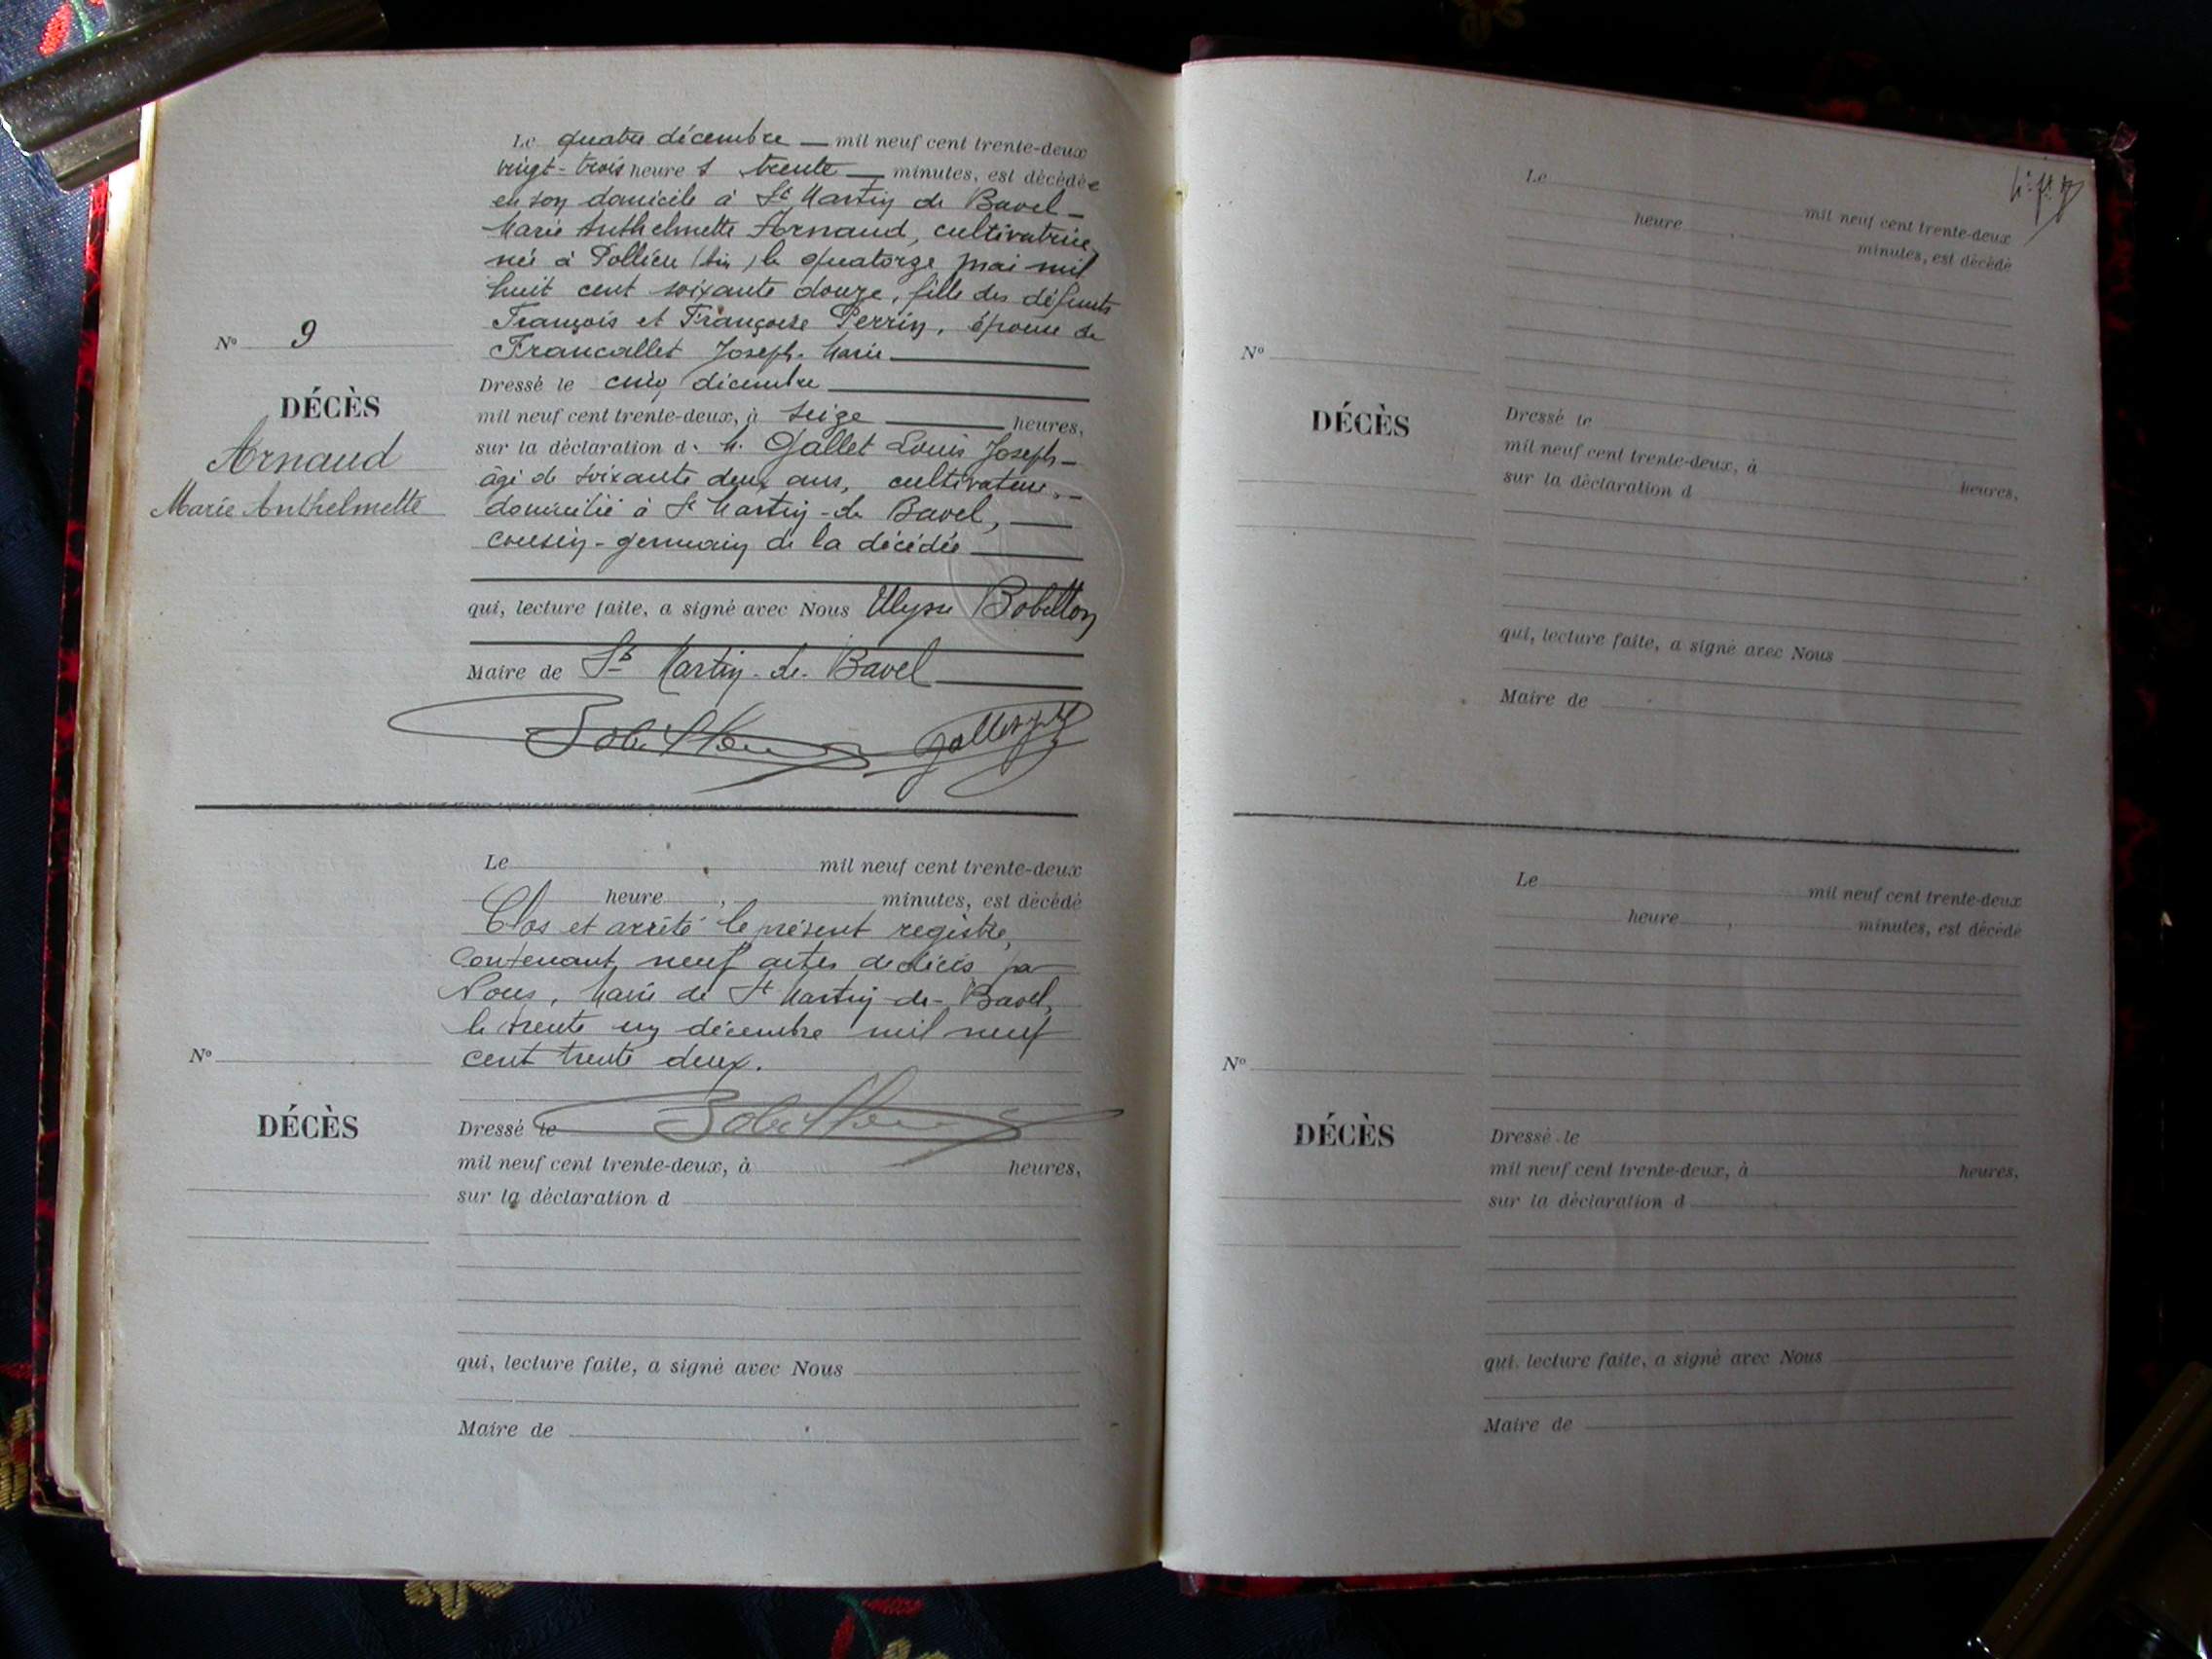 Le quatre décembre mil neuf cent trente-deux
vingt-trois heures trente minutes, est décédée
en son domicile à St Martin de Bavel
Marie Anthelmette Arnaud, cultivatrice,
née à Pollieu (Ain) le quatorze mai mil
huit cent soixante douze, fille des défunts
François et Françoise Perrin, épouse de
Francallet Joseph-Marie
Nº 9
DÉCÈS
Arnaud
Marie Anthelmette
Dressé le cinq décembre
mil neuf cent trente-deux, à seize heures,
sur la déclaration de M. Gallet Louis Joseph
âgé de soixante deux ans, cultivateur,
domicilié à St Martin-de Bavel,
cousin-germain de la décédée
qui, lecture faite, a signé avec Nous Ulysse Bobillon
Maire de St Martin-de-Bavel
Le mil neuf cent trente-deux
heure , minutes, est décédé
Clos et arrêté le présent registre,
contenant neuf actes de décès par
Nous, Maire de St Martin-de-Bavel,
le trente un décembre mil neuf
cent trente deux.
Nº
DÉCÈS
Dressé le
mil neuf cent trente-deux, à heures,
sur la déclaration d
qui, lecture faite, a signé avec Nous
Maire de
Le mil neuf cent trente-deux
heure , minutes, est décédé
Nº
DÉCÈS
Dressé le
mil neuf cent trente-deux, à heures,
sur la déclaration d
qui, lecture faite, a signé avec Nous
Maire de
Le mil neuf cent trente-deux
heure , minutes, est décédé
Nº
DÉCÈS
Dressé le
mil neuf cent trente-deux, à heures,
sur la déclaration d
qui, lecture faite, a signé avec Nous
Maire de